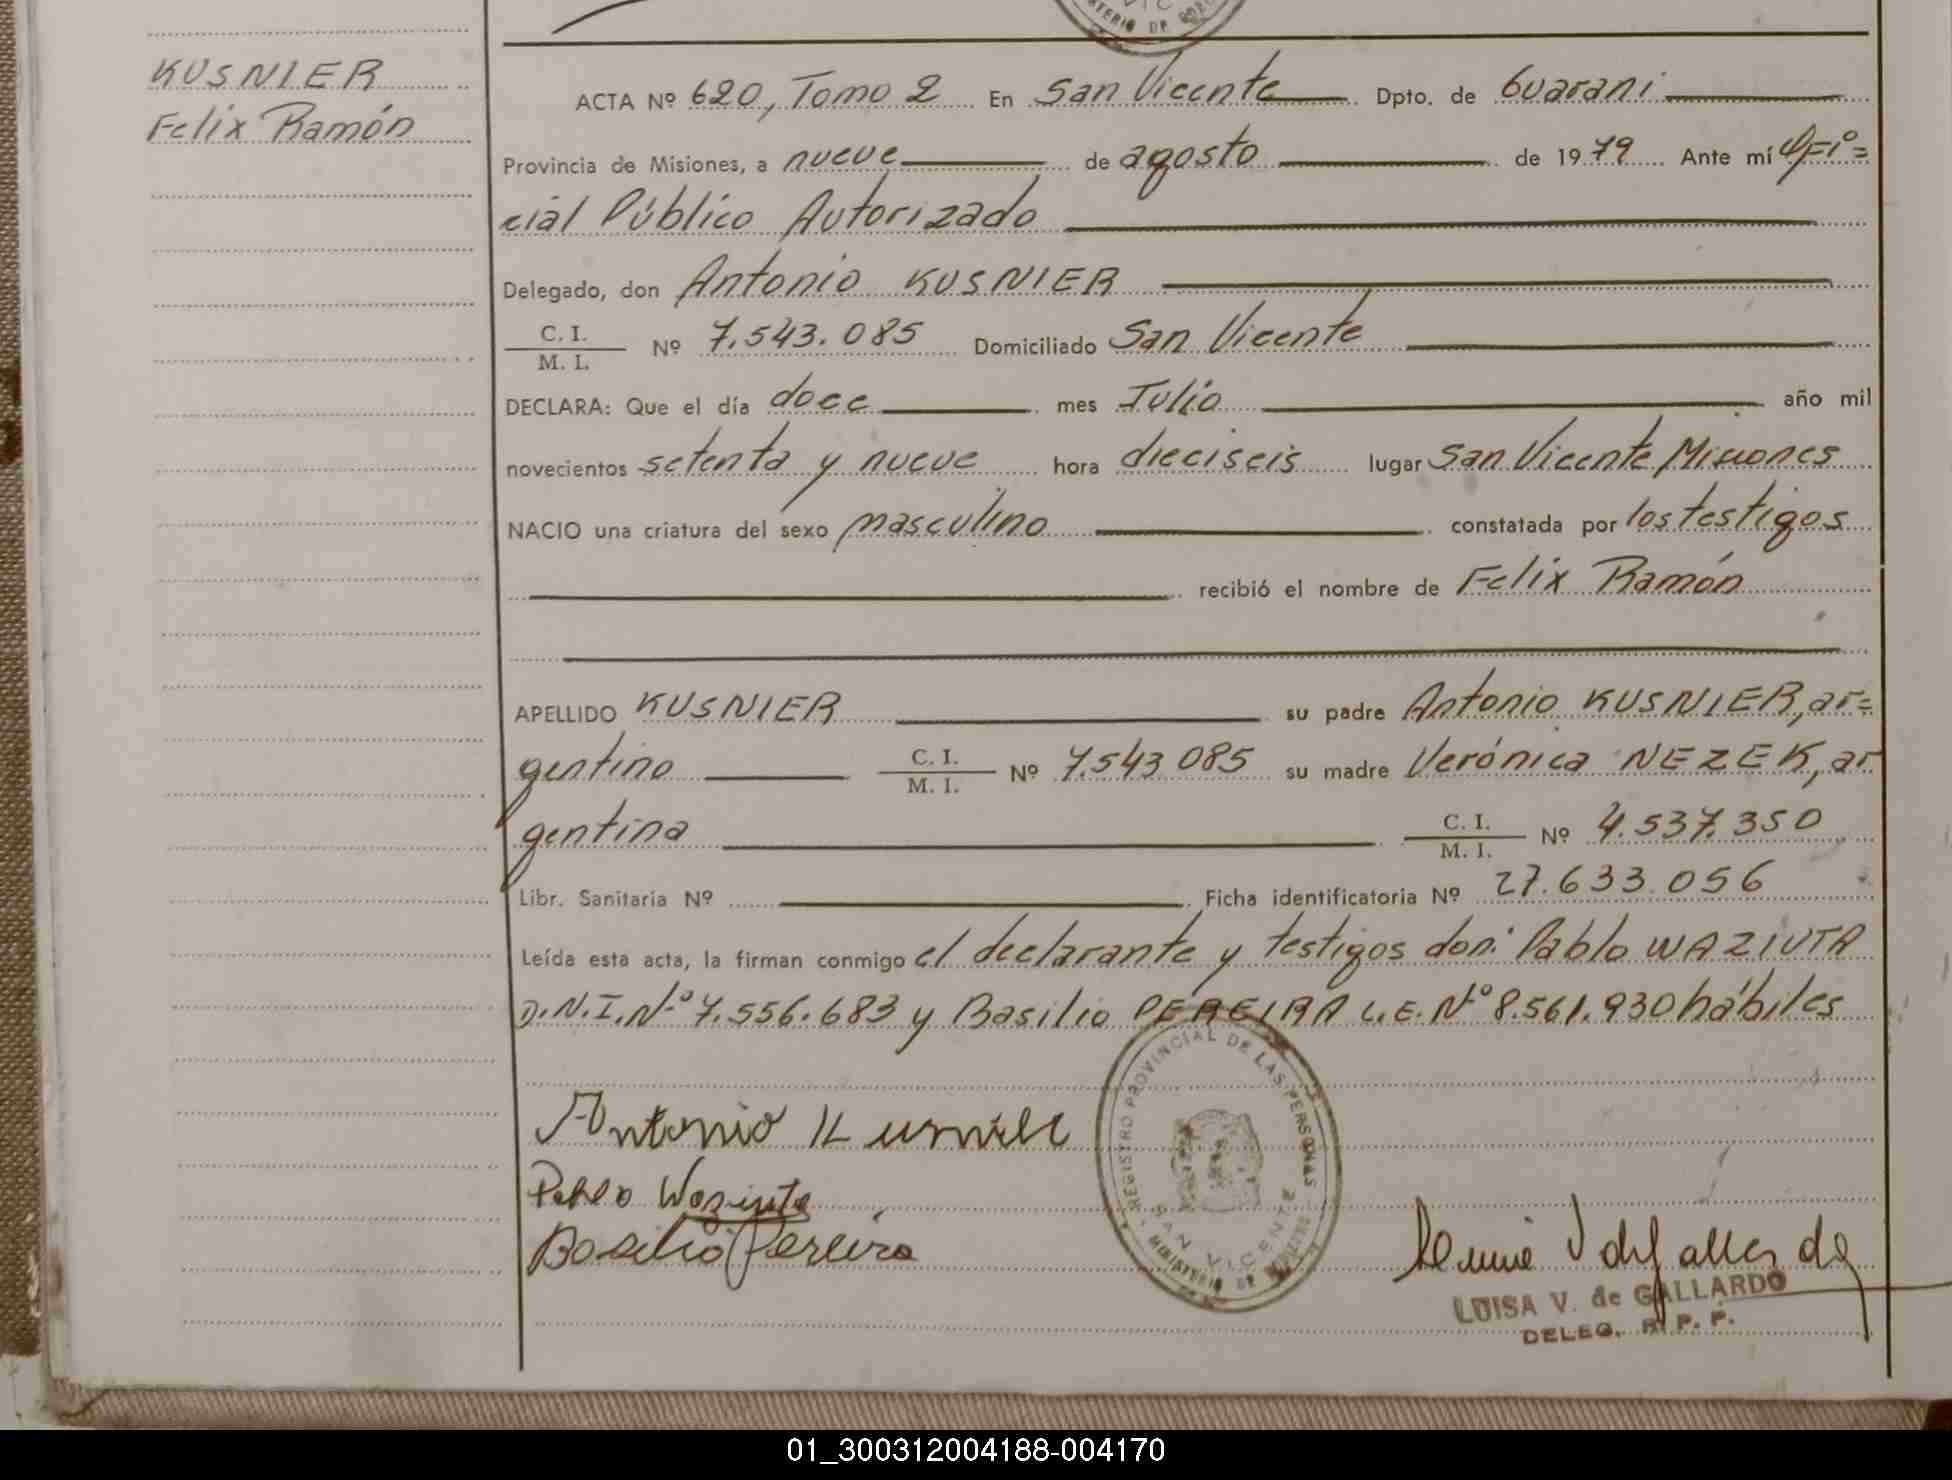 KUSNIER
Felix Ramón
ACTA Nº 620, Tomo 2 En San Vicente Dpto. de Guarani
Provincia de Misiones, a nueve de agosto de 1979 Ante mí Ofi=
cial Público Autorizado
Delegado, don Antonio KUSNIER
C. I.
M. I. Nº 7.543.085 Domiciliado San Vicente
DECLARA: Que el día doce mes Julio año mil
novecientos setenta y nueve hora dieciseis lugar San Vicente Misiones
NACIO una criatura del sexo masculino constatada por los testigos
recibió el nombre de Felix Ramón
APELLIDO KUSNIER su padre Antonio KUSNIER, ar=
gentino C. I. M. I. Nº 7.543.085 su madre Verónica NEZEK, ar
gentina C. I. M. I. Nº 4.537.350
Libr. Sanitaria Nº Ficha identificatoria Nº 27.633.056
Leída esta acta, la firman conmigo el declarante y testigos don: Pablo WAZIUTA
D.N.I. Nº 7.556.683 y Basilio PEREIRA L.E. Nº 8.561.930 hábiles
Antonio Kusnier
Pablo Waziuta
Basilio Pereira
REGISTRO PROVINCIAL DE LAS PERSONAS
SAN VICENTE
MINISTERIO DE GOBIERNO
LUISA V. de GALLARDO
DELEG. R. P. P.
01_300312004188-004170